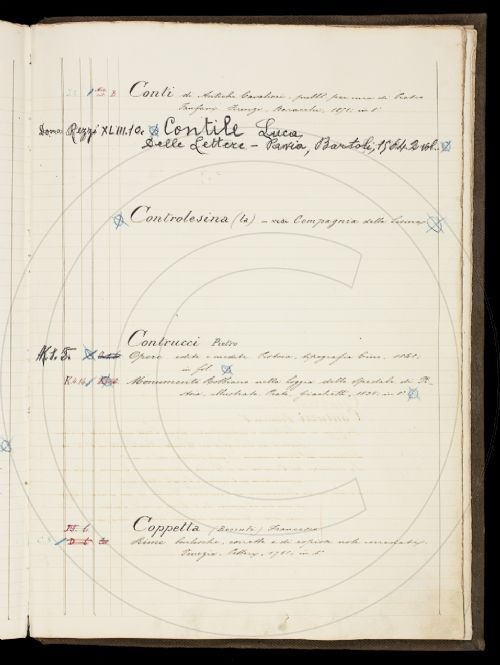 Conti di Antichi Cavalieri, pubbl. per cura di Pietro
Fanfani. Firenze, Baracchi, 1851, in 8°
Dono Rezzi XLIII.10. Contile Luca
Delle Lettere - Pavia, Bartoli, 1564. 2 vol.
Controlesina (la) - vedi Compagnia della Lesina
Contrucci Pietro
K.1.5. Opere edite e inedite. Pistoia, tipografia Cino, 1841.
in fol
K.4.16 Monumento Robbiano nella loggia dello spedale di Pi-
stoia, illustrato. Prato, Giachetti, 1835. in 8°
Coppetta (Beccuti) Francesco
D. 6 Rime burlesche, corrette e di copiose note
Venezia, 1751. in 4°